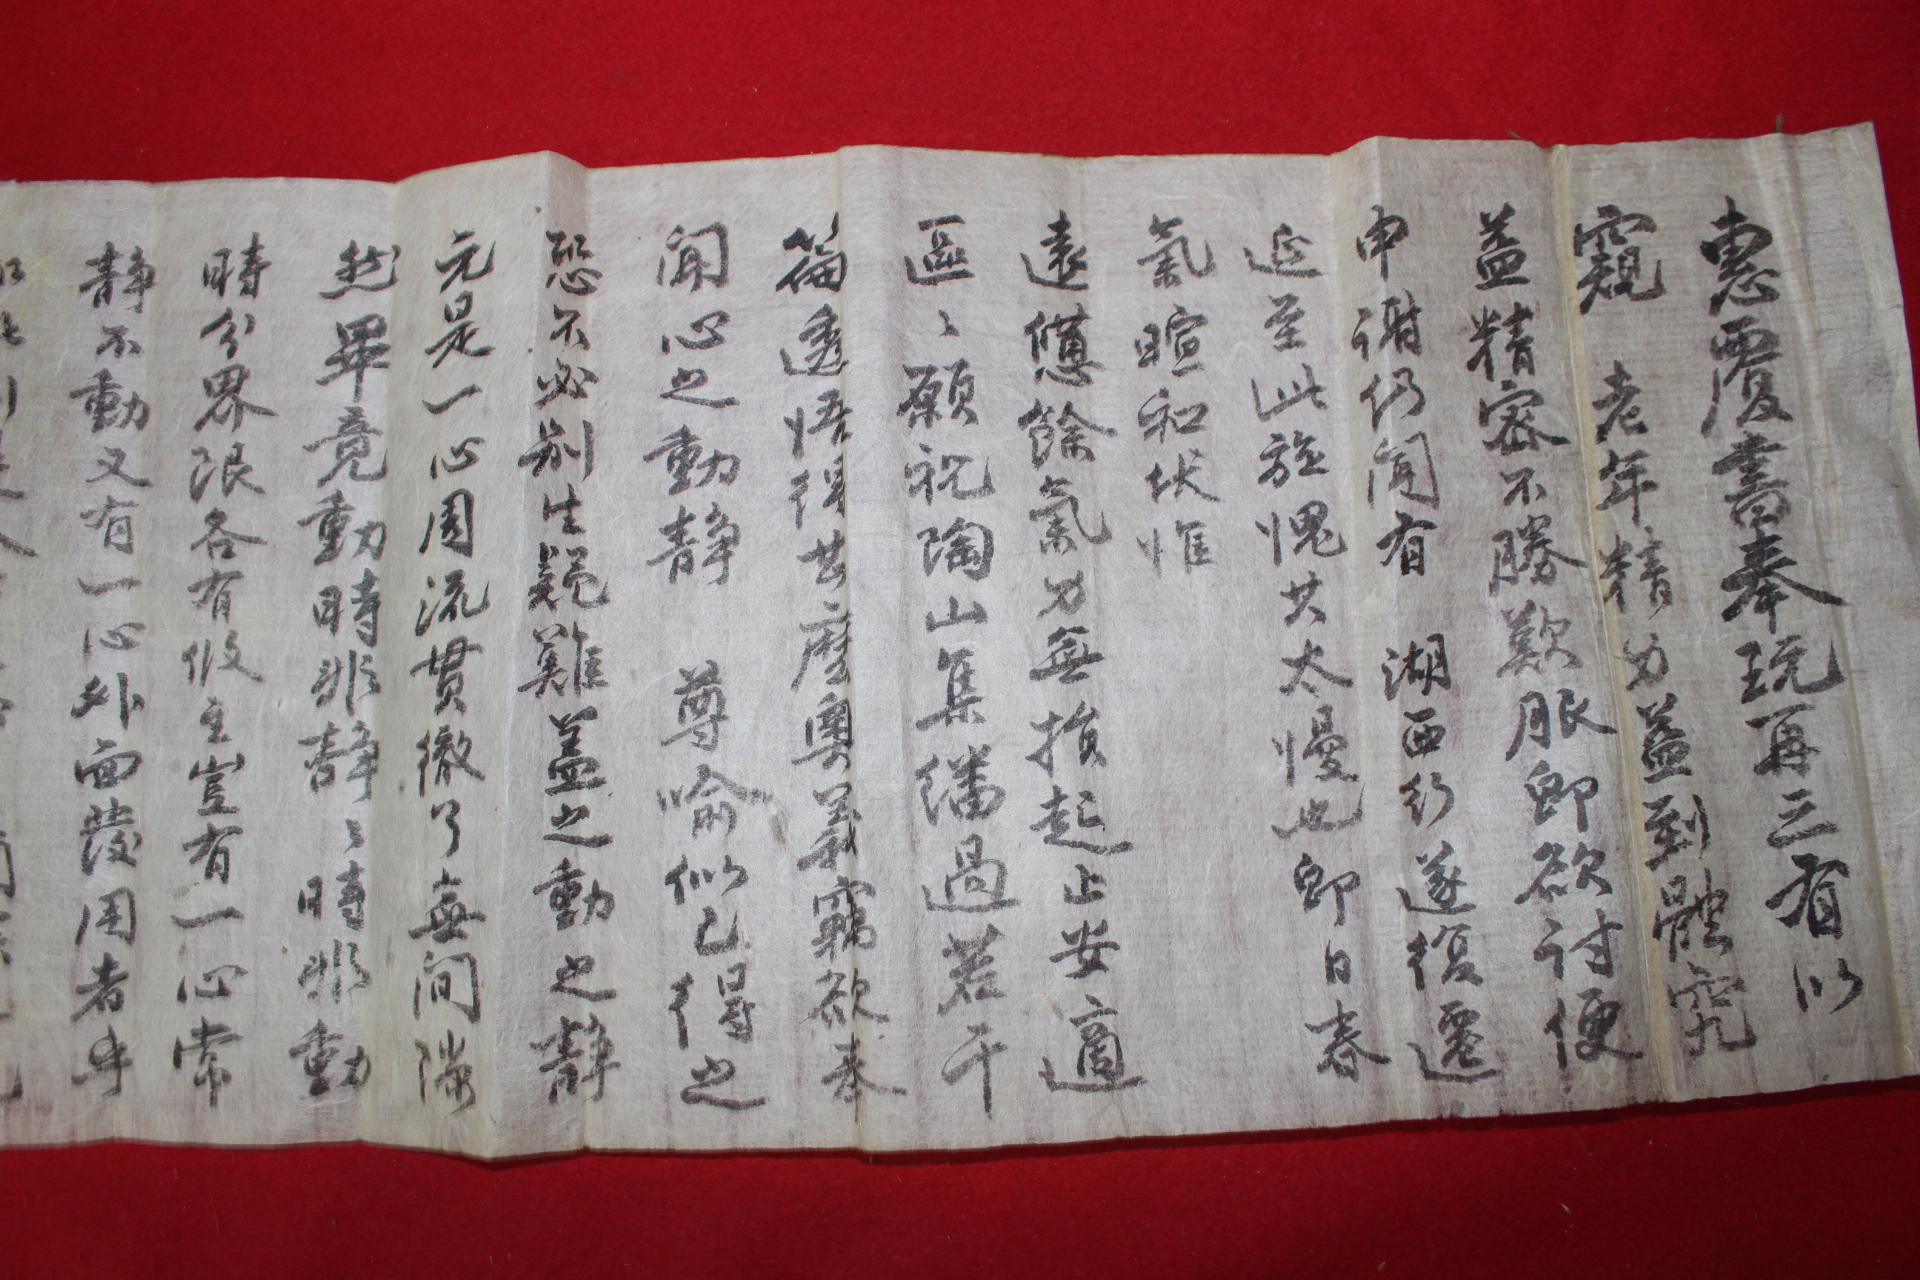 惠覆書奉玩再三有以
窺 老年精力益到體究
益精密不勝歎服卽欲討便
申謝仍聞有 湖西行遂復遷
延至此旋愧其太慢也卽日春
氣暄和伏惟
遠憊餘氣力無損起止安適
區〻願祝陶山集繙過若干
篇透悟得甚麽奧義竊欲奉
聞心之動靜 尊喩似已得之
恐不必別生疑難蓋之動之靜
元是一心周流貫徹了無間隙
然畢竟動時非靜〻時非動
時分界限各有攸主豈有一心常
靜不動又有一心外面發用者乎